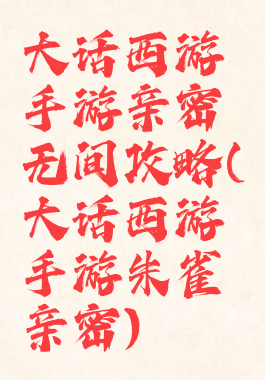 大话西游
手游亲密
无间攻略(
大话西游
手游朱雀
亲密)